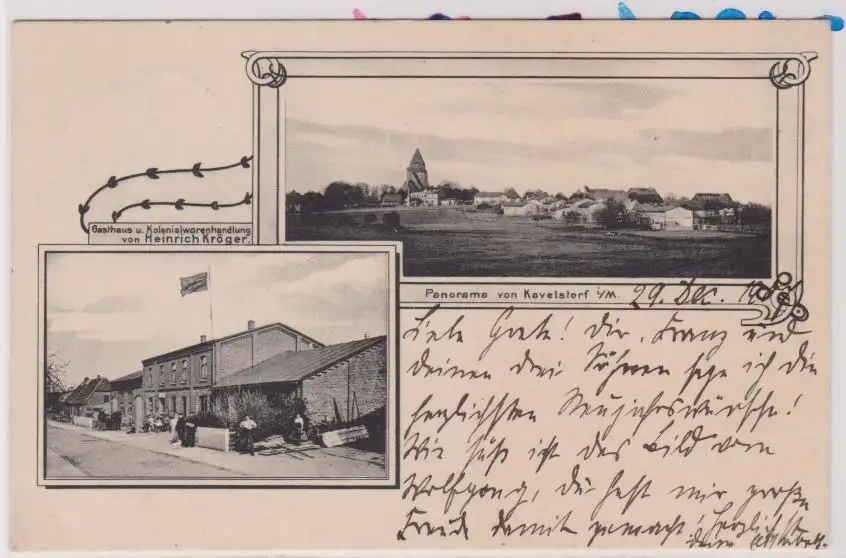 Gasthaus u. Kolonialwarenhandlung
von Heinrich Kröger.
Panorama von Kavelstorf i/M.
29. Dec.
Liebe Grete! Dir, Franz und
deinen drei Söhnen sage ich die
herzlichsten Neujahrswünsche!
Wie süß ist das Bild vom
Wolfgang, du hast mir große
Freude damit gemacht! Herzlichst
deine